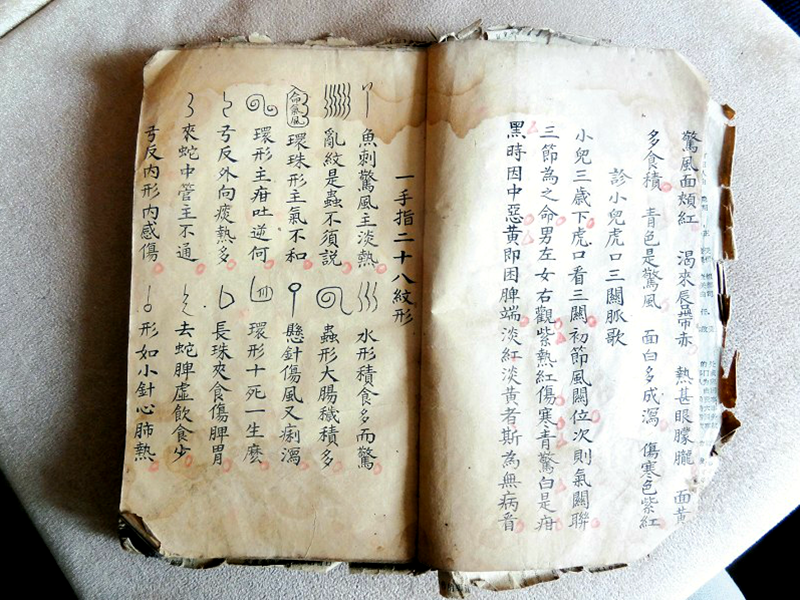 驚風面頰紅　渴來唇帶赤　熱甚眼朦朧　面黃
多食積　青色是驚風　面白多成瀉　傷寒色紫紅
診小兒虎口三關脈歌
小兒三歲下虎口看三關初節風關位次則氣關聯
三節為之命男左女右觀紫熱紅傷寒青驚白是疳
黑時因中惡黃即困脾端淡紅淡黃者斯為無病看
一手指二十八紋形
魚刺驚風主淡熱　水形積食多而驚
亂紋是蟲不須説　蟲形大腸穢積多
命紋風
環珠形主氣不和　懸針傷風又痢瀉
環形主疳吐逆何　環形十死一生麽
弓反外向痰熱多　長珠夾食傷脾胃
來蛇中管主不通　去蛇脾虛飲食少
弓反內形內感傷　形如小針心肺熱